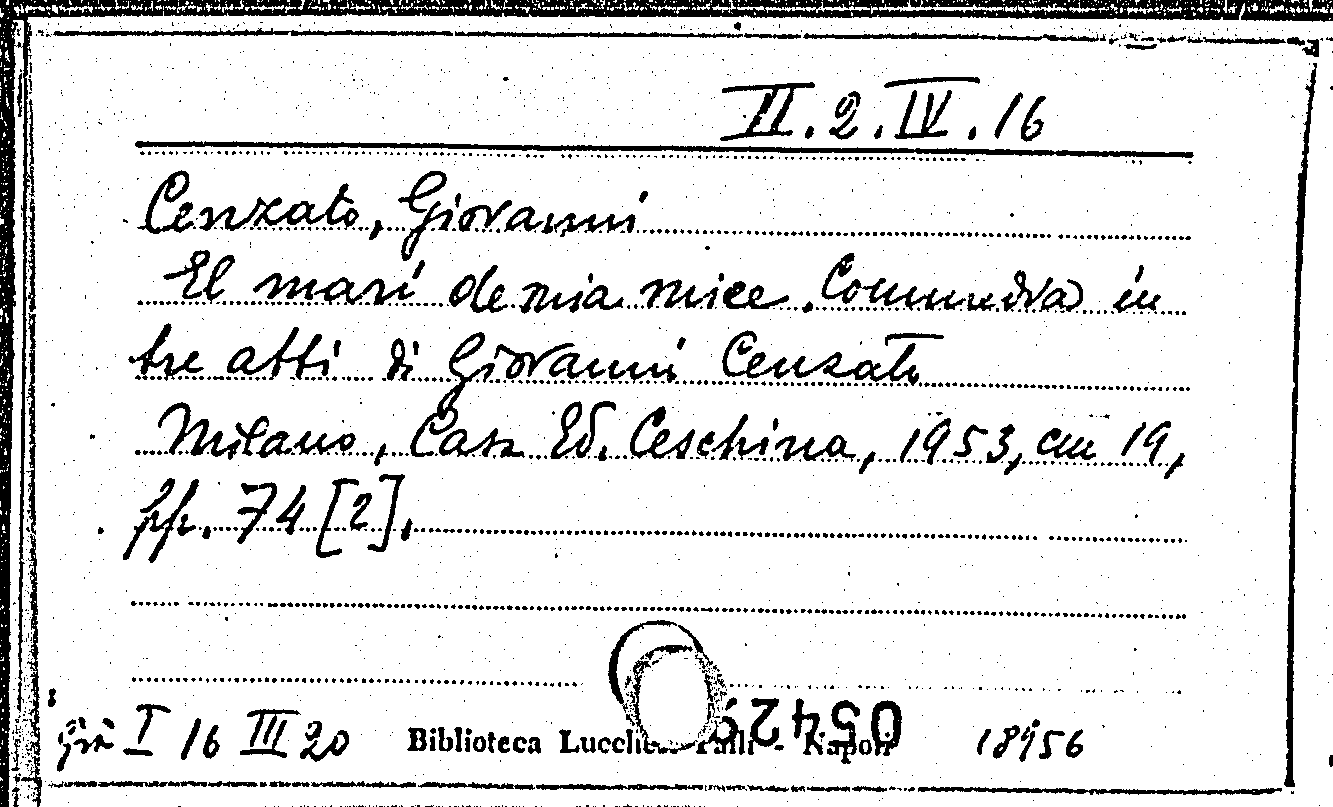 II.2.IV.16
Cenzato, Giovanni
El marì de mia mice. Commedia in
tre atti di Giovanni Cenzato
Milano, Casa Ed. Ceschina, 1953, cm 19,
pp. 74 [2].
già I 16 III 20 Biblioteca Napoli 18956